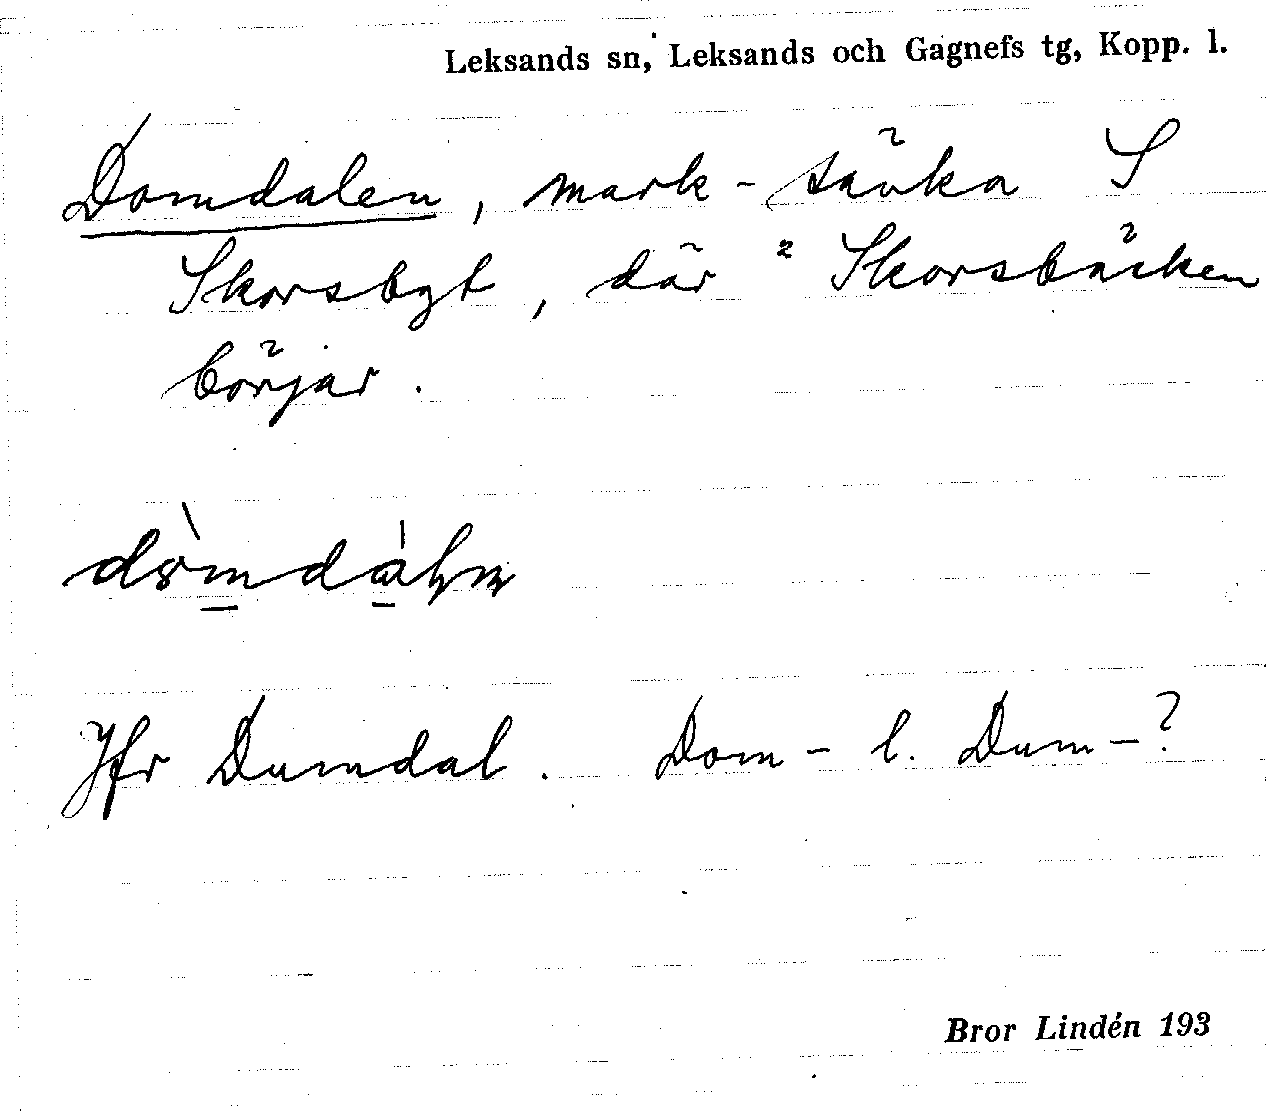 Leksands sn, Leksands och Gagnefs tg, Kopp. l.
Domdalen, mark-sänka S
Skorsbygt, där ² Skorsbäcken
börjar.
Jfr Dumdal. Dom- l. Dum-?
Bror Lindén 193